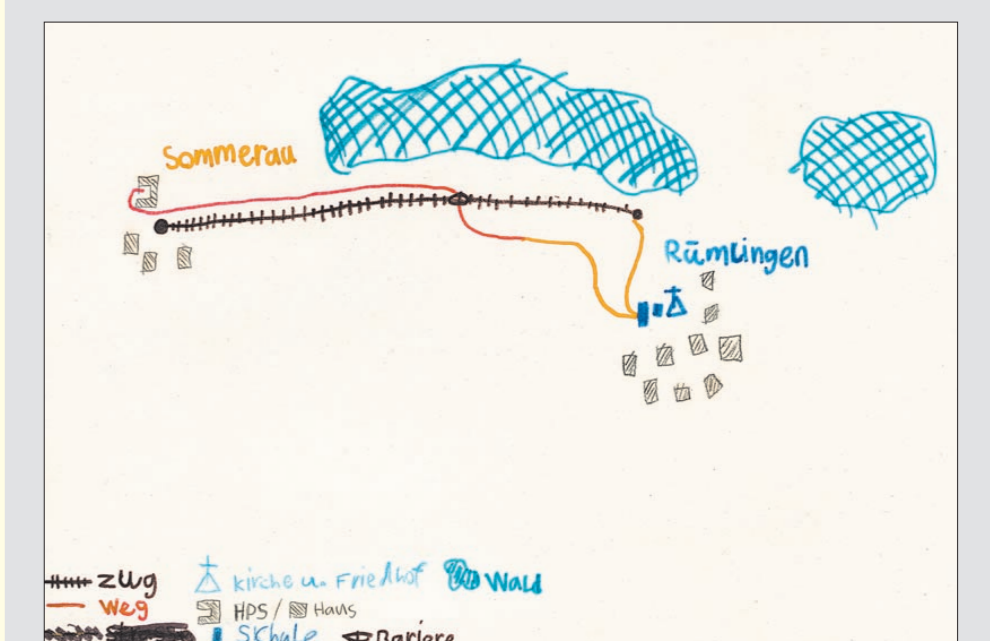 Sommerau
Rümlingen
Zug kirche u. Friedhof Wald
Weg HPS / Haus
Schule Bariere